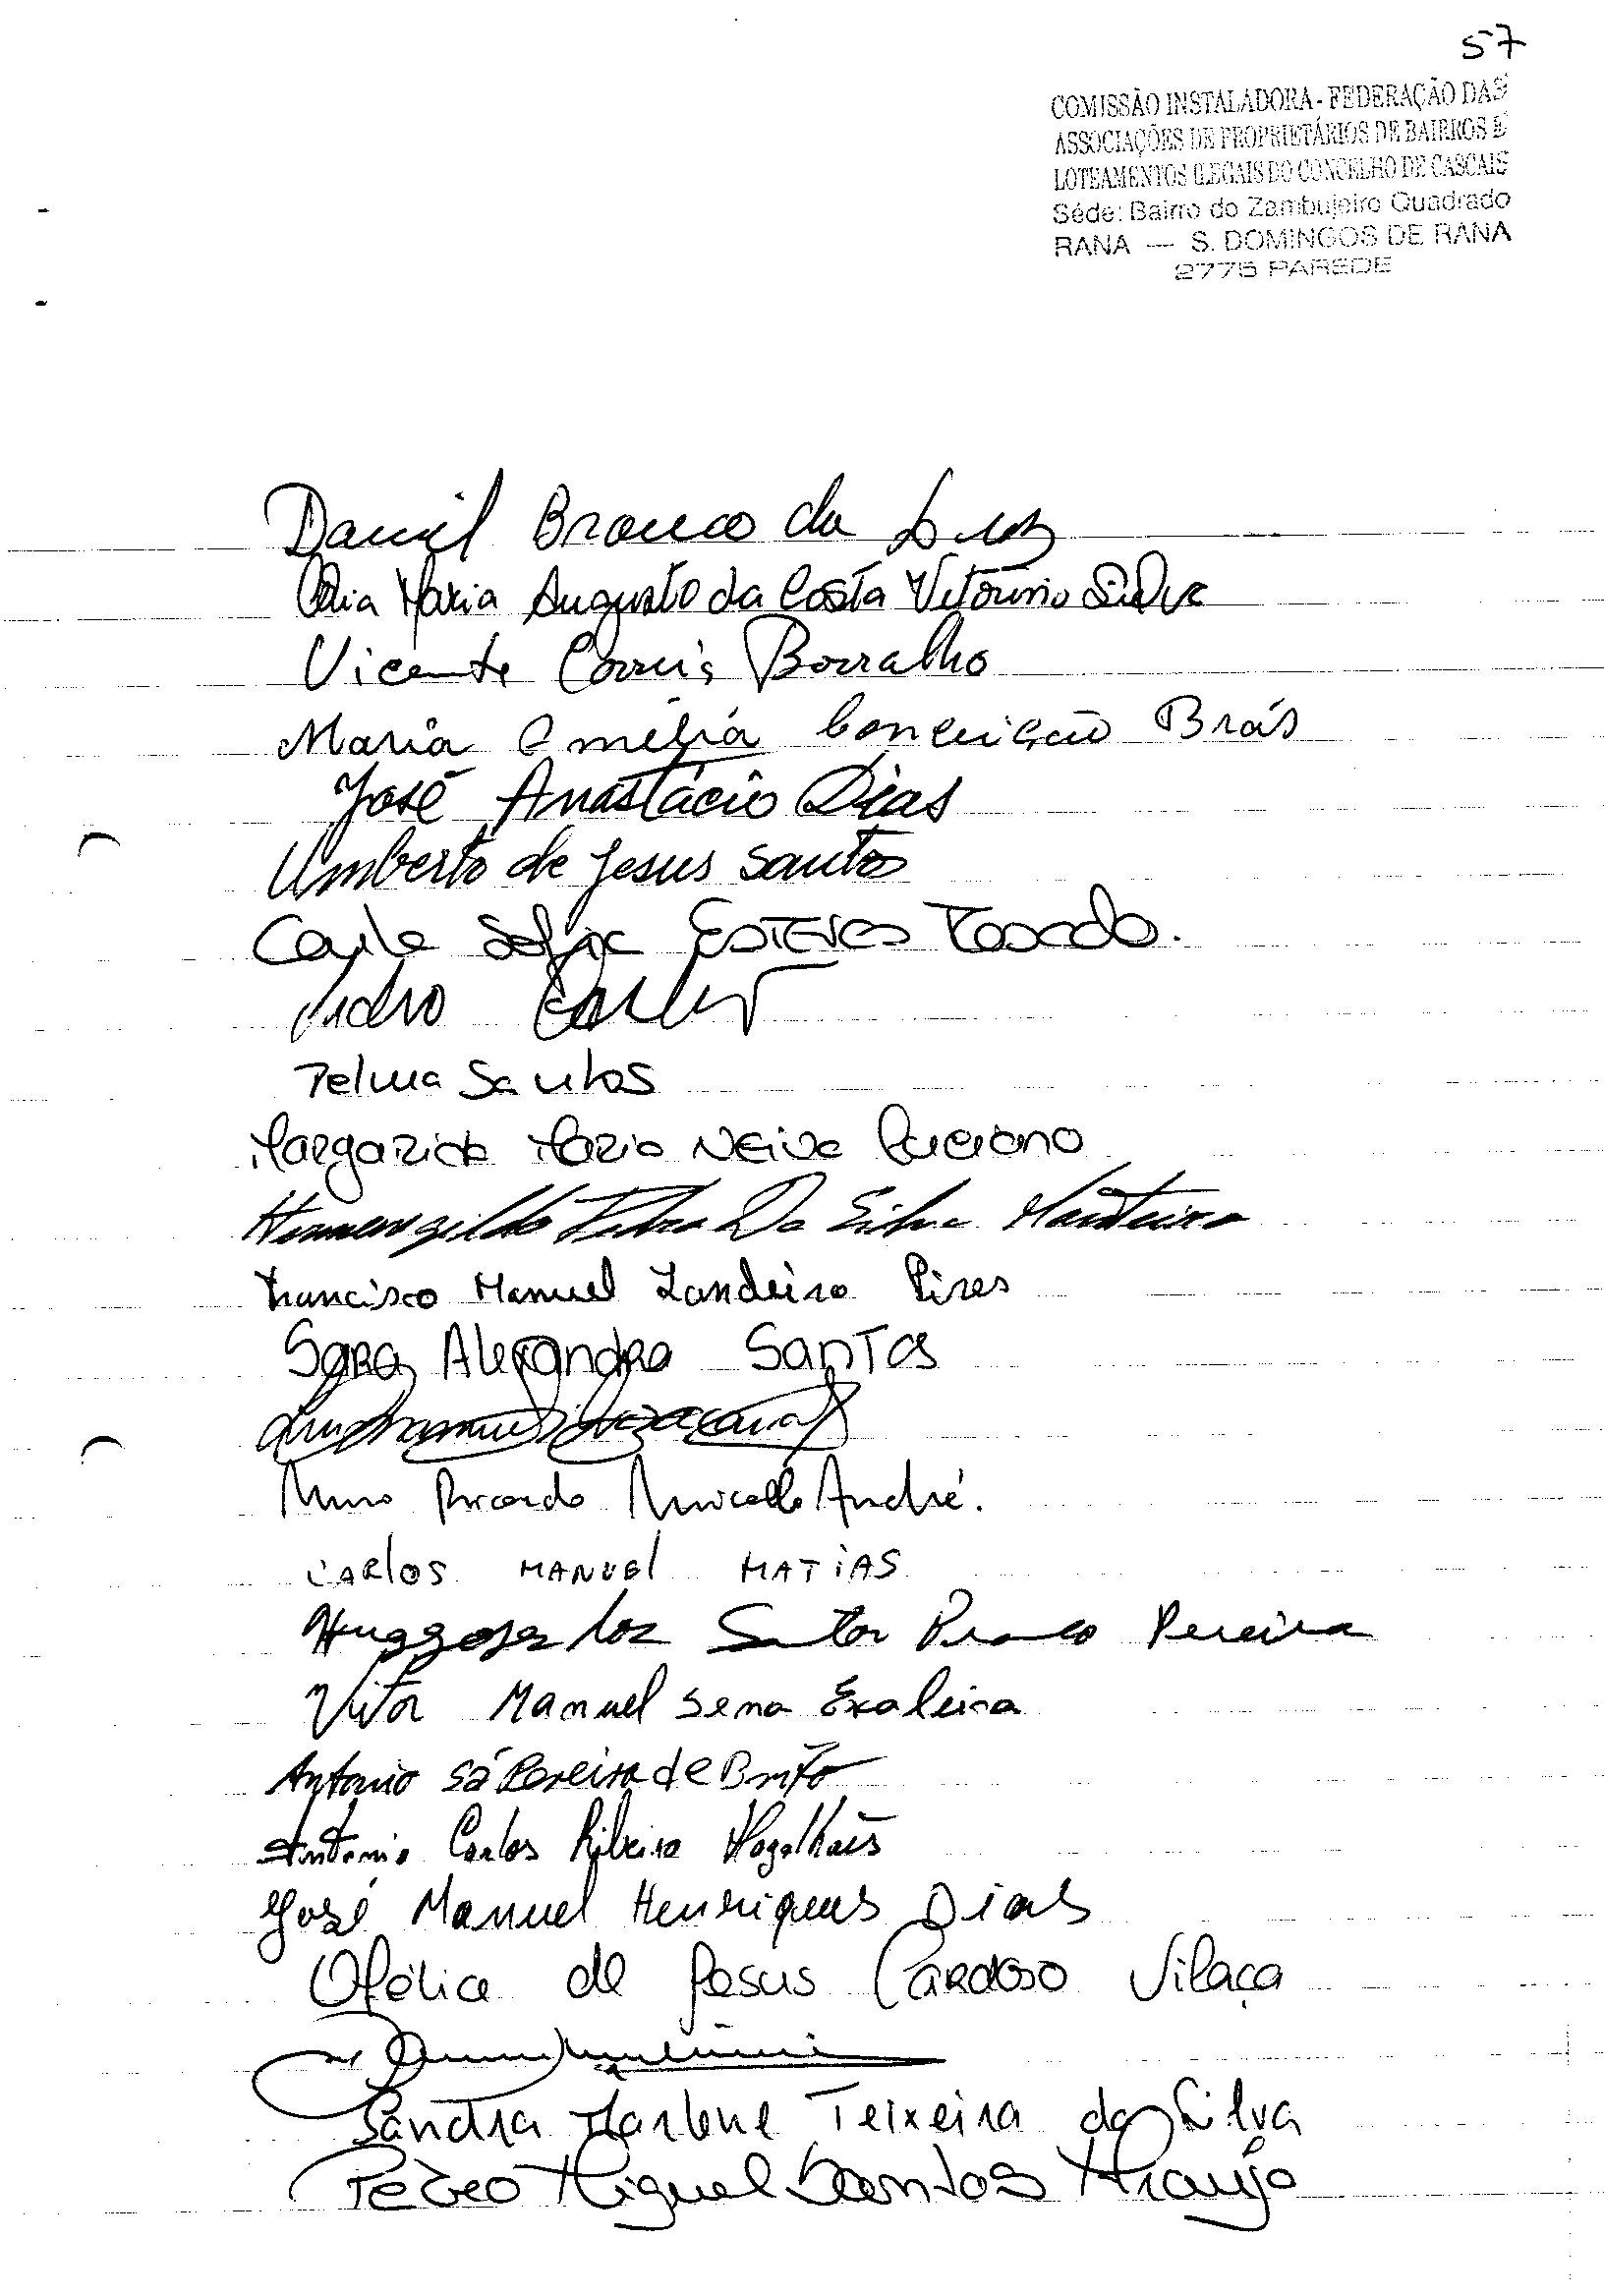 57
COMISSÃO INSTALADORA - FEDERAÇÃO DAS
ASSOCIAÇÕES DE PROPRIETÁRIOS DE BAIRROS E
LOTEAMENTOS ILEGAIS DO CONCELHO DE CASCAIS
Séde: Bairro do Zambujeiro Quadrado
RANA — S. DOMINGOS DE RANA
2775 PAREDE
Daniel Branco da Luz
Maria Augusto da Costa Vitorino Silva
Vicente Borralho
Maria Amélia Conceição Brás
José Anastácio Dias
Umberto de Jesus Santos
Carla Sofia ESTEVES
Pedro
Telma Santos
Margarida Maria Neiva Luciano
Hermenegildo Pedro Da Silva Monteiro
Francisco Manuel Landeiro Pires
Sara Alexandra Santos
Nuno Ricardo André.
CARlos MANUEl MATiAS
Santos Pereira
Vitor Manuel Sena Exaleira
Antonio Sá Pereira de Brito
Antonio Carlos Ribeiro Magalhães
José Manuel Henriques Dias
Ofélia de Jesus Cardoso Vilaça
Sandra Marlene Teixeira da Silva
Pedro Miguel Santos Araujo